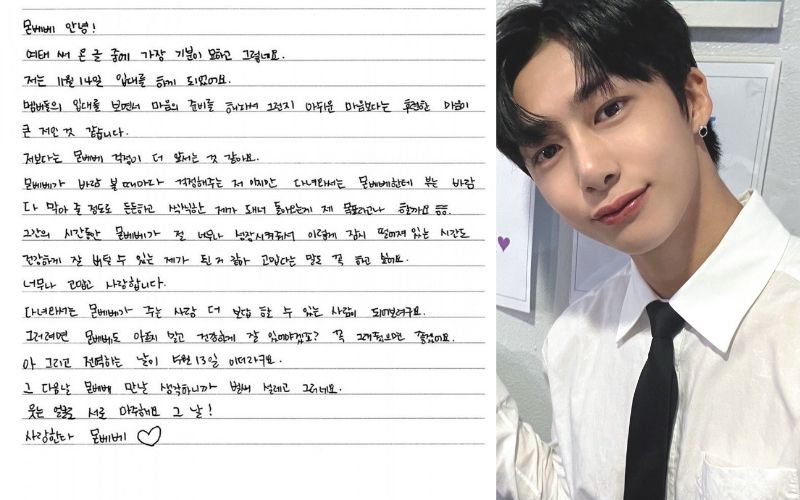 몬베베 안녕!
여태 써 온 글 중에 가장 기분이 묘하고 그렇네요.
저는 11월 14일 입대를 하게 되었어요.
멤버들의 입대를 보면서 마음의 준비를 해놔서 그런지 아쉬운 마음보다는 후련한 마음이
큰 저인것 같습니다.
저보다는 몬베베 걱정이 더 앞서는 것 같아요.
몬베베가 바람 불 때마다 걱정해주는 저 이지만 다녀와서는 몬베베한테 부는 바람
다 막아 줄 정도로 든든하고 씩씩한 제가 돼서 돌아오는게 제 목표라고나 할까요 ㅎㅎ.
그간의 시간동안 몬베베가 절 너무나 성장시켜줘서 이렇게 잠시 떨어져 있는 시간도
건강하게 잘 버틸 수 있는 제가 된 거 같아 고맙다는 말도 꼭 하고 싶어요.
너무나 고맙고 사랑합니다.
다녀와서는 몬베베가 주는 사랑 더 보답 할 수 있는 사람이 되어보려구요.
그러려면 몬베베도 아프지 말고 건강하게 잘 있어야겠죠? 꼭 그래줬으면 좋겠어요.
아 그리고 전역하는 날이 5월 13일 이더라구요.
그 다음날 몬베베 만날 생각하니까 벌써 설레고 그러네요.
웃는 얼굴로 서로 마주해요 그 날!
사랑한다 몬베베 ♡